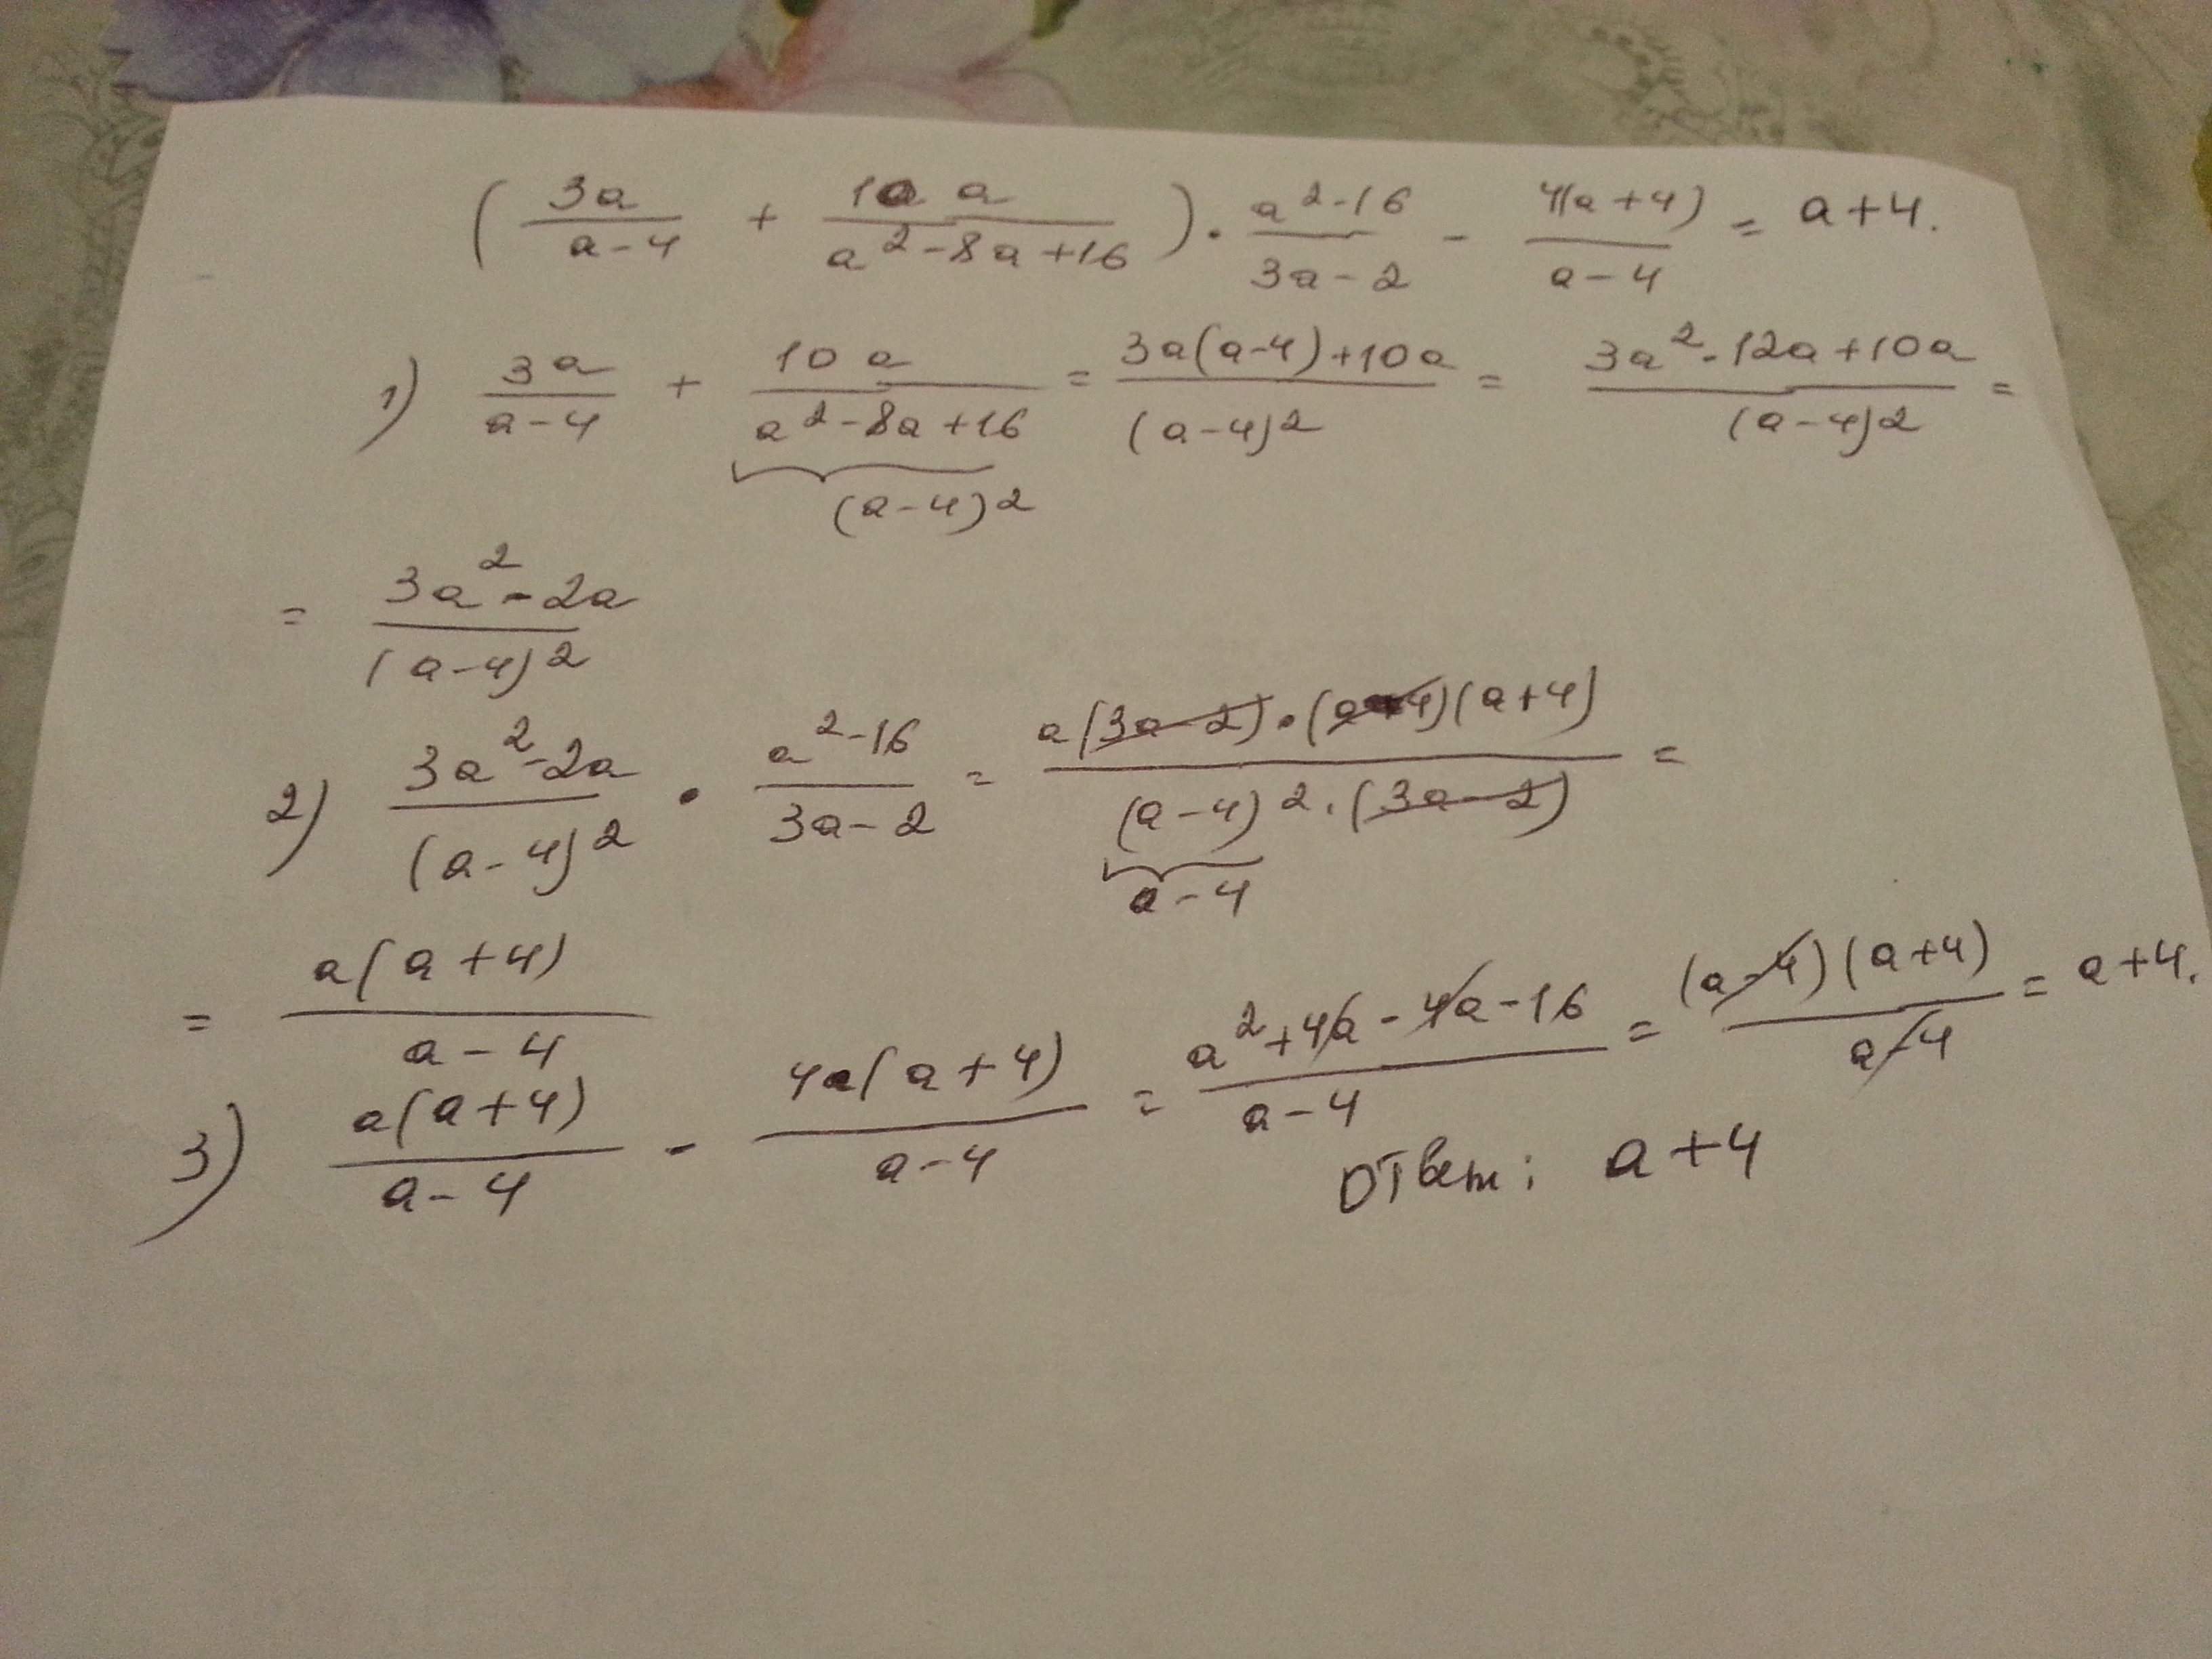 ( 3a/(a-4) + 10a/(a²-8a+16) ) · (a²-16)/(3a-2) - 4(a+4)/(a-4) = a+4.
1) 3a/(a-4) + 10a/(a²-8a+16) = (3a(a-4)+10a)/(a-4)² = (3a²-12a+10a)/(a-4)² =
(a-4)²
= (3a²-2a)/(a-4)²
2) (3a²-2a)/(a-4)² · (a²-16)/(3a-2) = a(3a-2)·(a-4)(a+4)/((a-4)²·(3a-2)) =
a-4
= a(a+4)/(a-4)
3) a(a+4)/(a-4) - 4a(a+4)/(a-4) = (a²+4a-4a-16)/(a-4) = (a-4)(a+4)/(a-4) = a+4.
Ответ: a+4